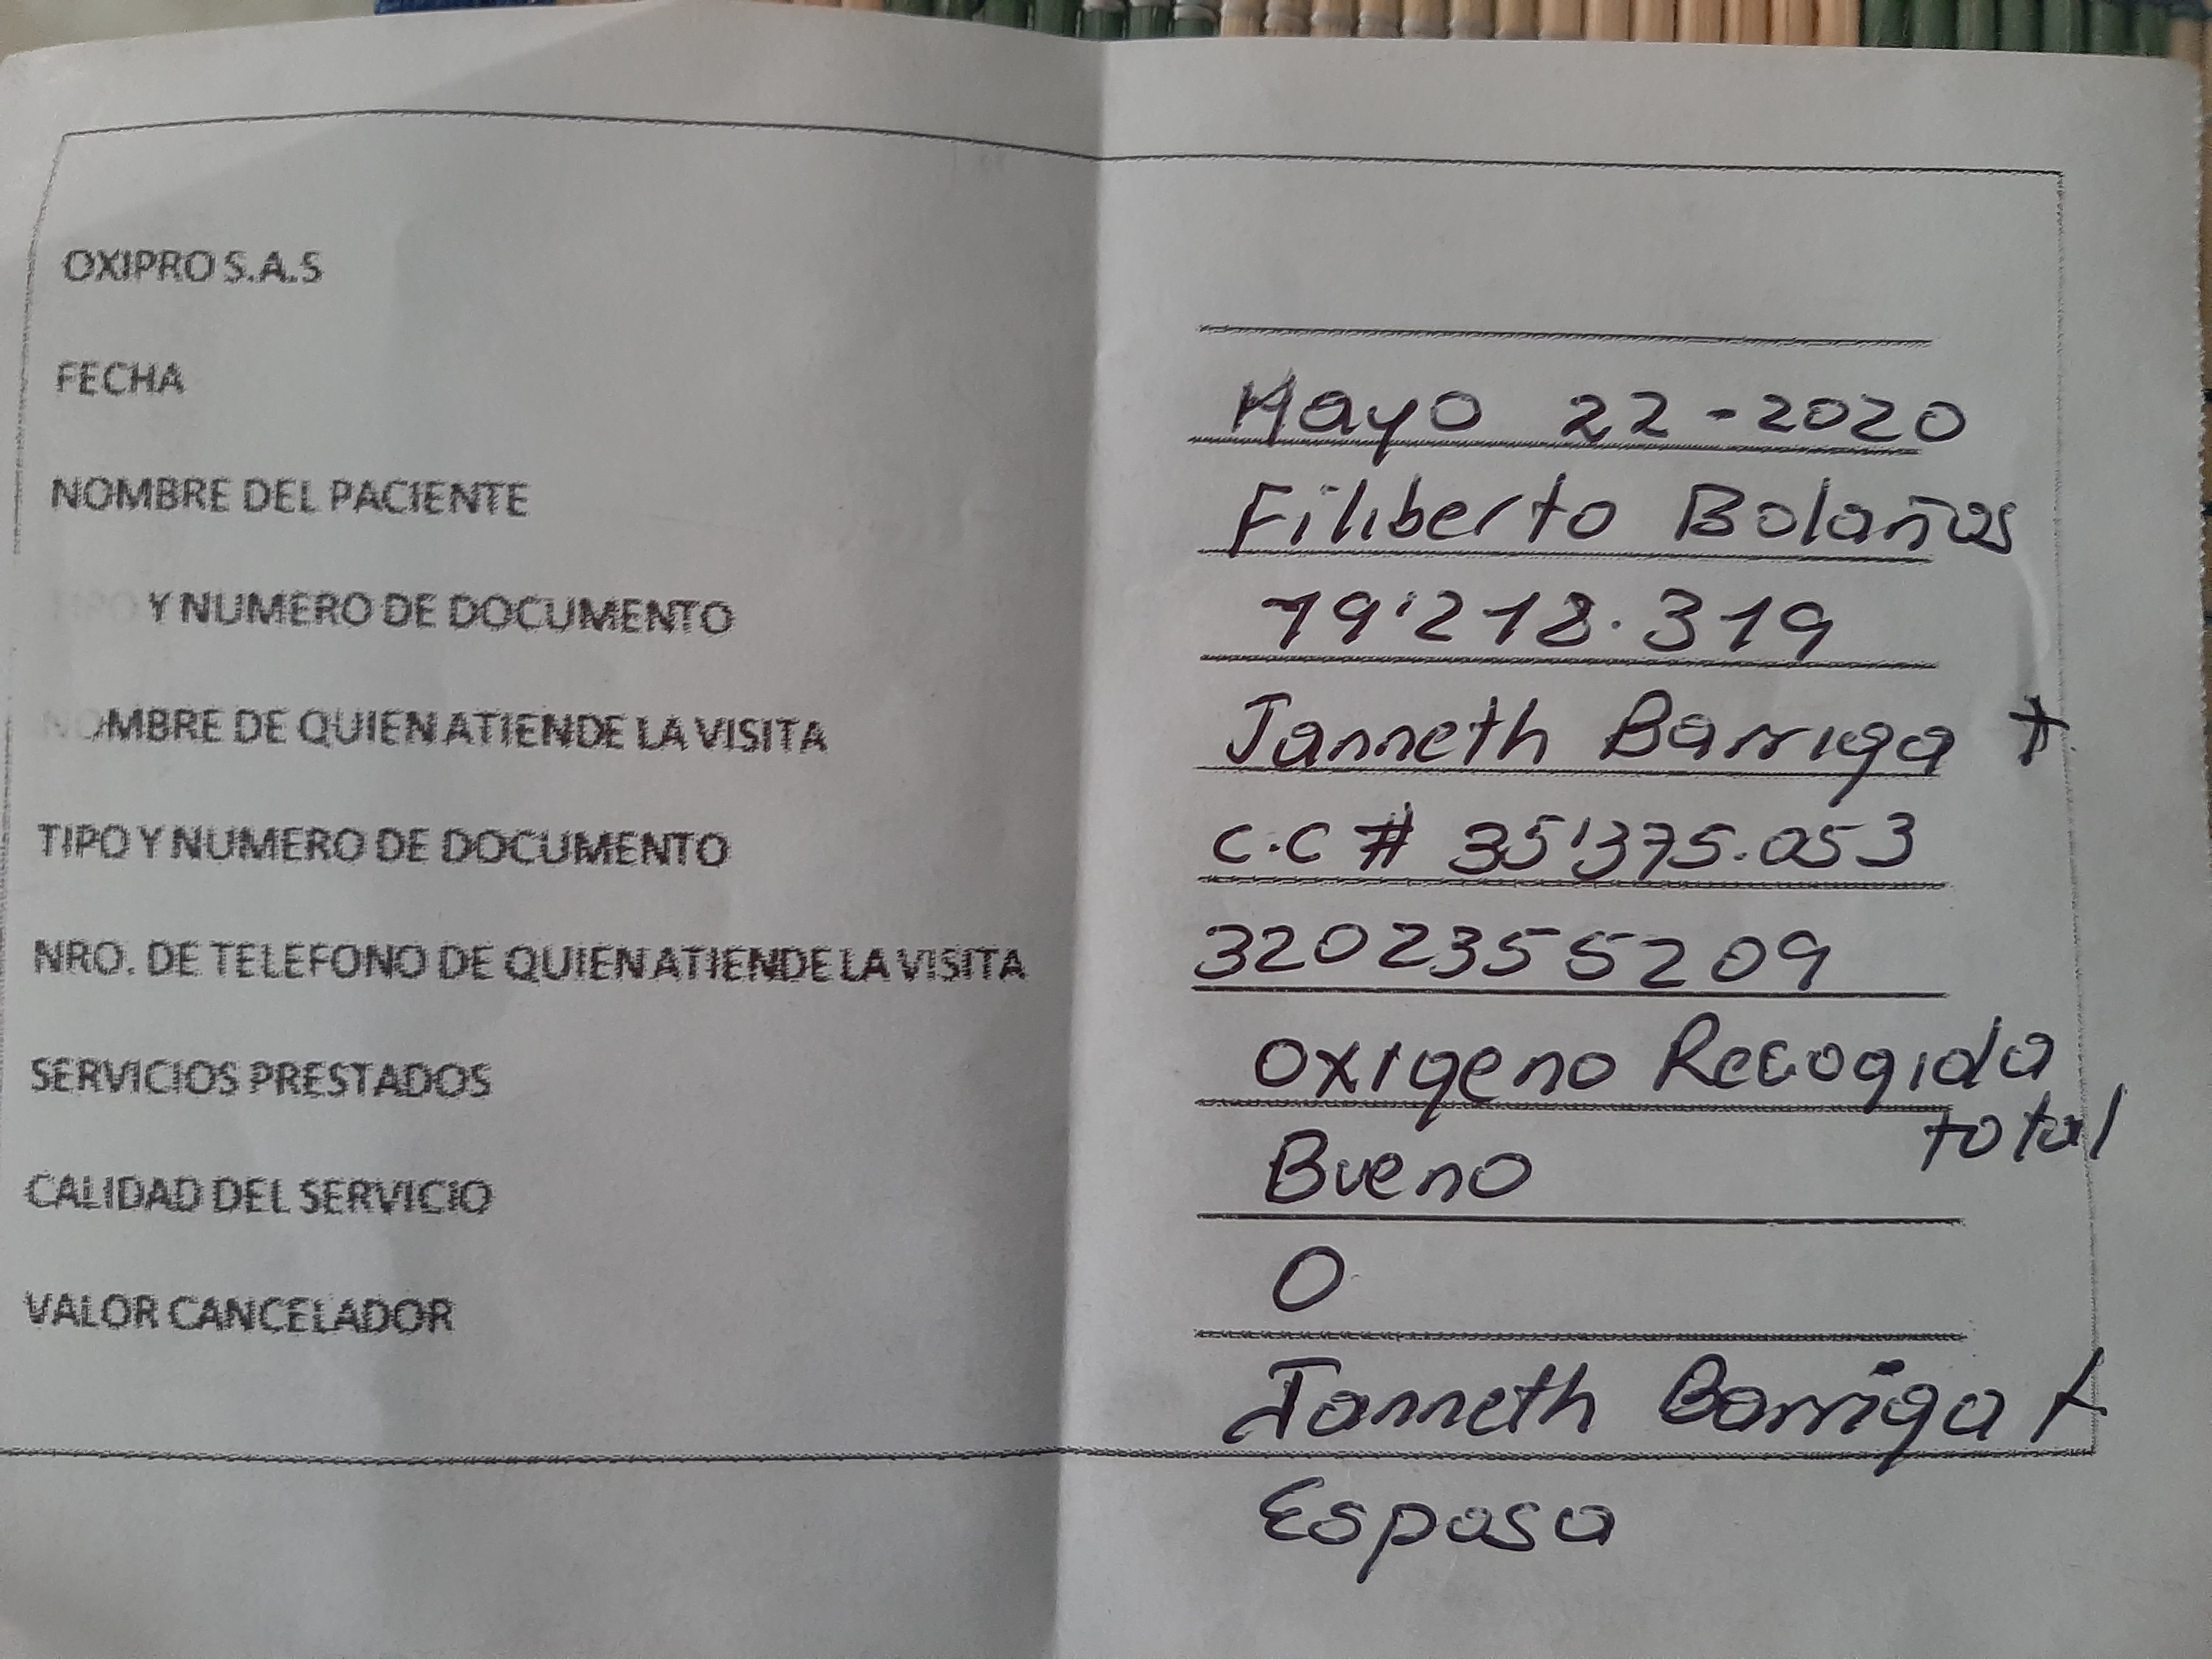 OXIPRO S.A.S
FECHA Mayo 22-2020
NOMBRE DEL PACIENTE Filiberto Bolaños
TIPO Y NUMERO DE DOCUMENTO 19'218.319
NOMBRE DE QUIEN ATIENDE LA VISITA Janneth Barriga t.
TIPO Y NUMERO DE DOCUMENTO C.C # 35'375.053
NRO. DE TELEFONO DE QUIEN ATIENDE LA VISITA 3202355209
SERVICIOS PRESTADOS Oxigeno Recogida
total
CALIDAD DEL SERVICIO Bueno
VALOR CANCELADOR 0
Janneth Barriga t
Esposa